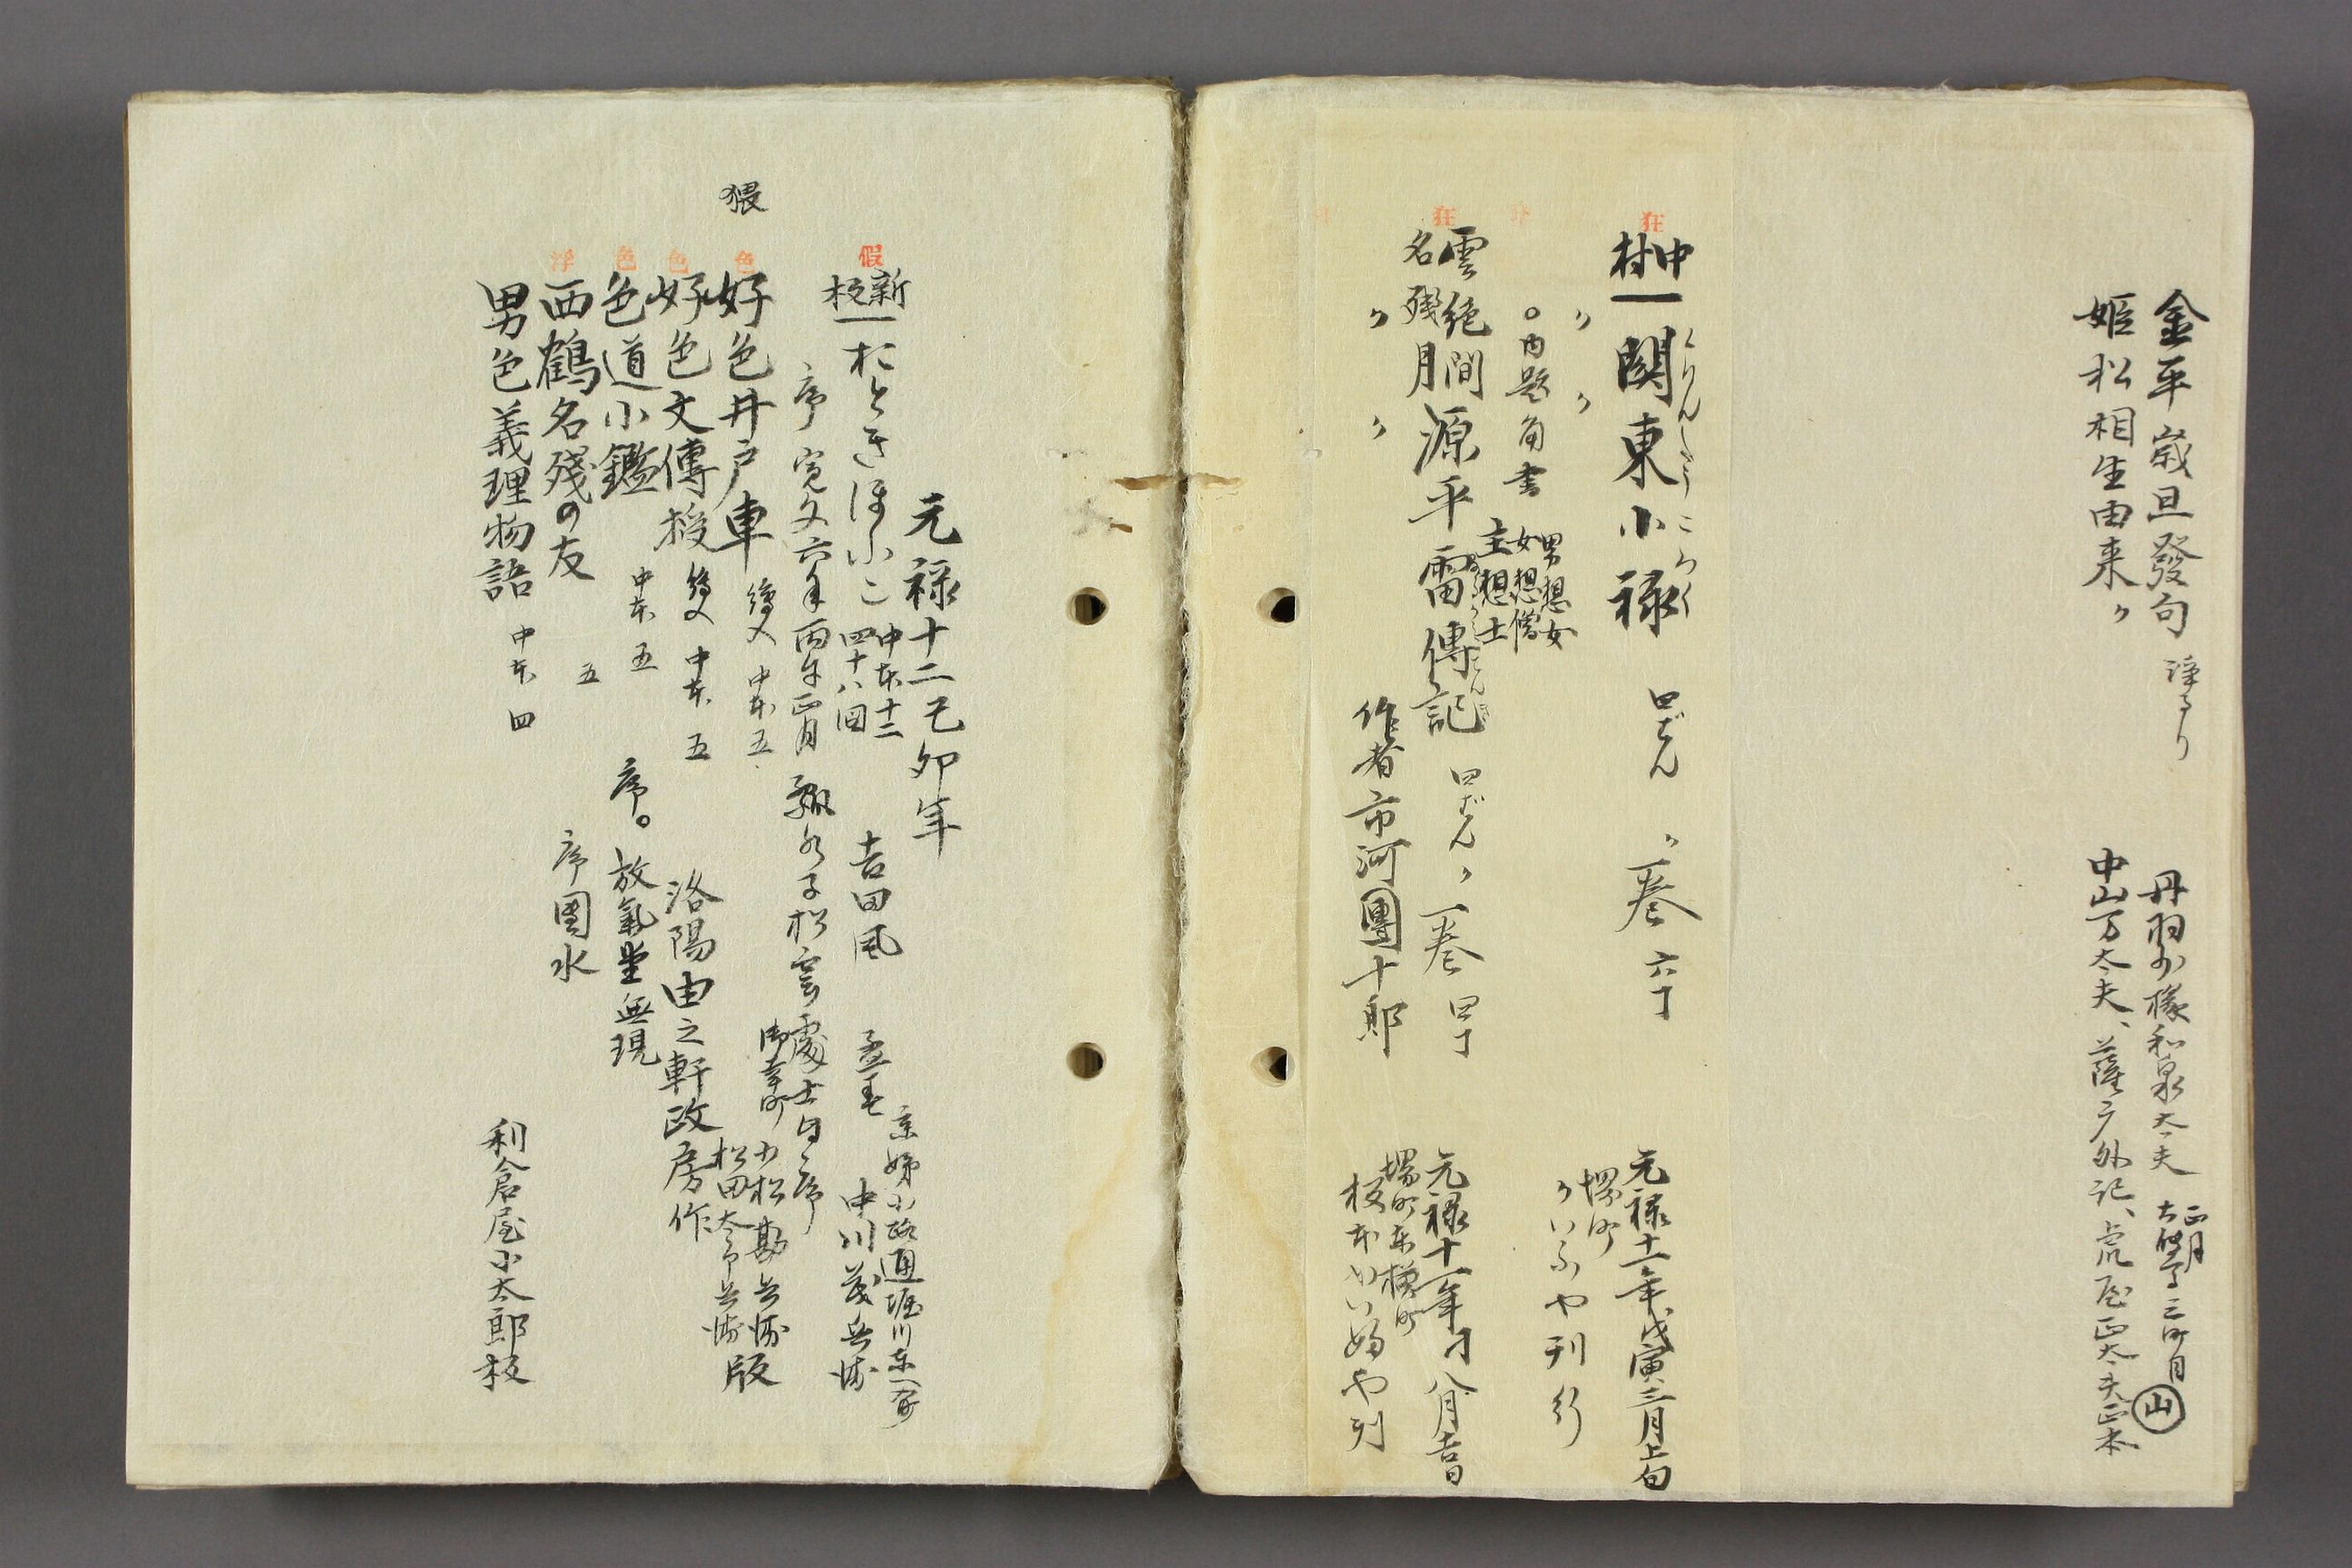 金平歳旦發句 浄るり 丹羽少掾和泉太夫 正月
姫松相生由来〃 中山万太夫、薩广外記、虎屋正太夫正本 山
狂
中村一 関東小禄 四ばん 〃 一巻 六丁 元禄十一年戊寅三月上旬
くわんとうころく
〃 〃 堺町
〃いふや刊行
○内題角書 男想女 女想僧 主想士
狂
雲絶間
名残月 源平雷傳記 四ばん 〃 一巻 四丁 元禄十一年 八月吉日
〃 〃 作者 市河團十郎
元禄十二己卯年
假
新板一 おときほふこ 中本十二 四十八図 吉田風 中川茂兵衛
序 寛文六年丙午正月 瓢水子松雲處士自序
猥
色
好色井戸車 繪入 中本五 小松勘兵衛 松田太郎兵衛 版
色
好色文傳授 繪入 中本 五 洛陽由之軒政房作
色
色道小鑑 中本 五 序。放氣堂無現
浮
西鶴名殘の友 五 序 團水
男色義理物語 中本 四 利倉屋小太郎板